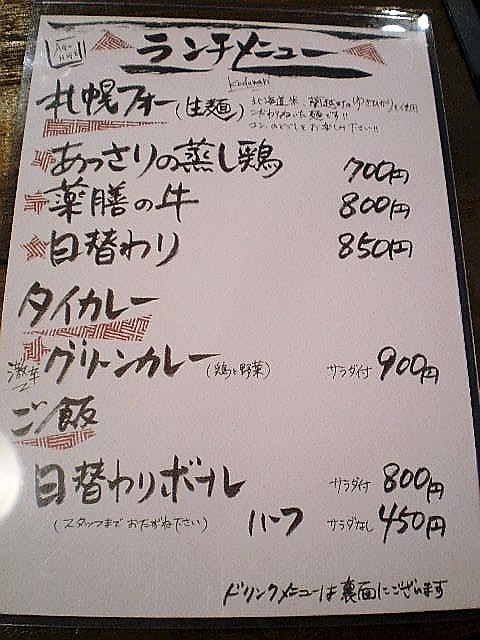 ランチメニュー
kodawari
札幌フォー(生麺)
北海道米、蘭越町のゆきひかりを使用
こだわりぬいた麺です!!
コシ、のどごしをお楽しみ下さい!!
あっさりの蒸し鶏 700円
薬膳の牛 800円
日替わり 850円
タイカレー
激辛 グリーンカレー(鶏と野菜) サラダ付 900円
ご飯
日替わりボール サラダ付 800円
(スタッフまでおたずね下さい) ハーフ サラダなし 450円
ドリンクメニューは裏面にございます